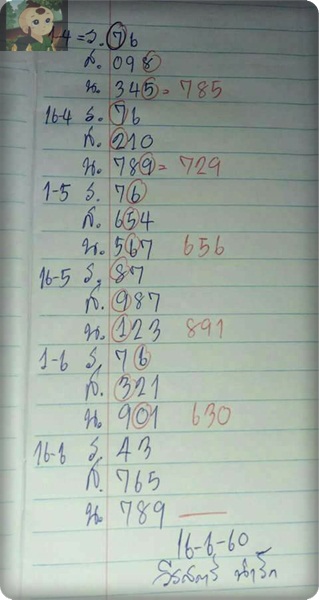 1-4 = ธ. 76
ส. 098
น. 345 = 785
16-4 ธ. 76
ส. 210
น. 789 = 729
1-5 ธ. 76
ส. 654
น. 567 656
16-5 ธ. 87
ส. 987
น. 123 891
1-6 ธ. 76
ส. 321
น. 901 630
16-6 ธ. 43
ส. 765
น. 789 —
16-6-60